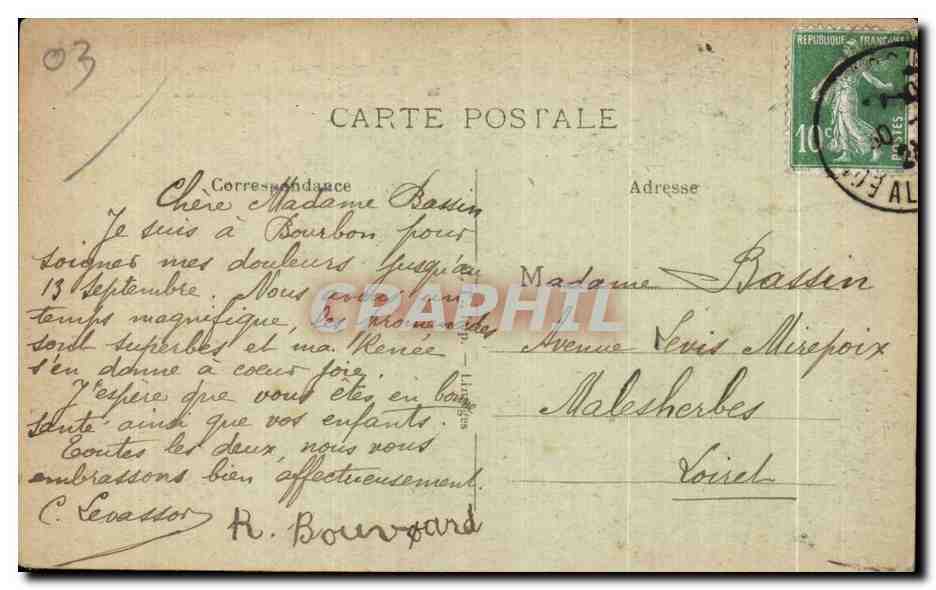 03
REPUBLIQUE FRANÇAISE
10c
POSTES
CARTE POSTALE
Correspondance
Adresse
Chère Madame Bassin
Je suis à Bourbon pour
soigner mes douleurs jusqu'au
13 septembre. Nous avons un
temps magnifique, les promenades
sont superbes et ma Renée
s'en donne à coeur joie.
J'espère que vous êtes en bonne
santé ainsi que vos enfants.
Toutes les deux, nous vous
embrassons bien affectueusement.
C. Levassor
R. Bouvard
Limoges
Madame Bassin
Avenue Levis Mirepoix
Malesherbes
Loiret
CPAPHIL